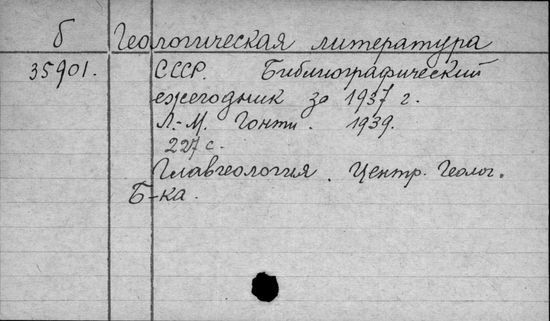 б Геологическая литература
35901. СССР. Библиографический
ежегодник за 1937 г.
Л.-М. Гонти. 1939.
227 с.
Главгеология. Центр. Геолог.
Б-ка.